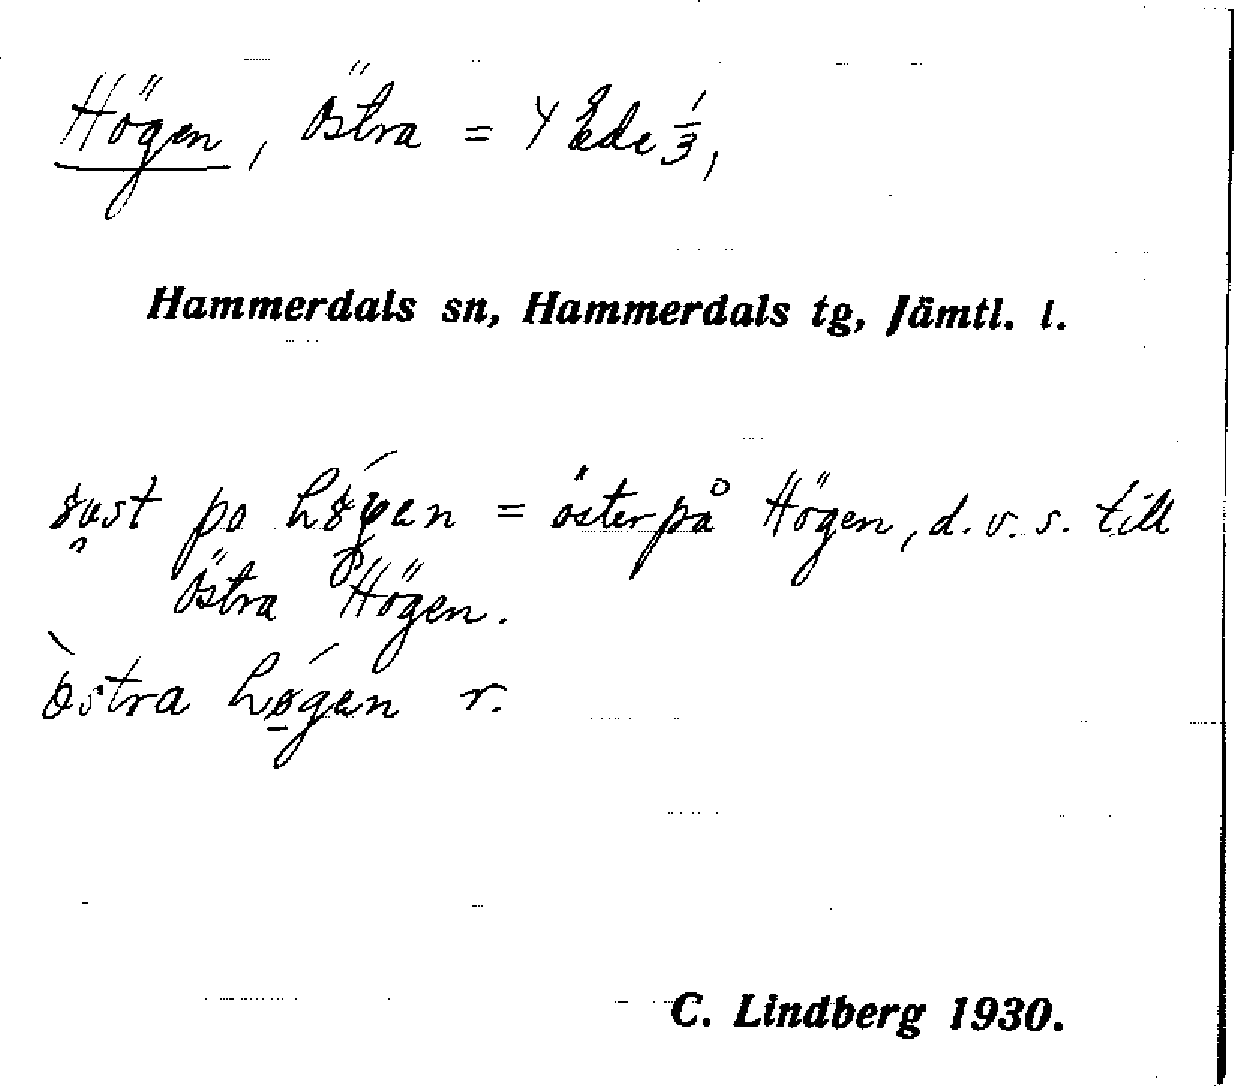 Högen, Östra = Y Ede 1/3,
Hammerdals sn, Hammerdals tg, Jämtl. l.
po = öster på Högen, d.v.s. till
Östra Högen.
östra högan r.
C. Lindberg 1930.